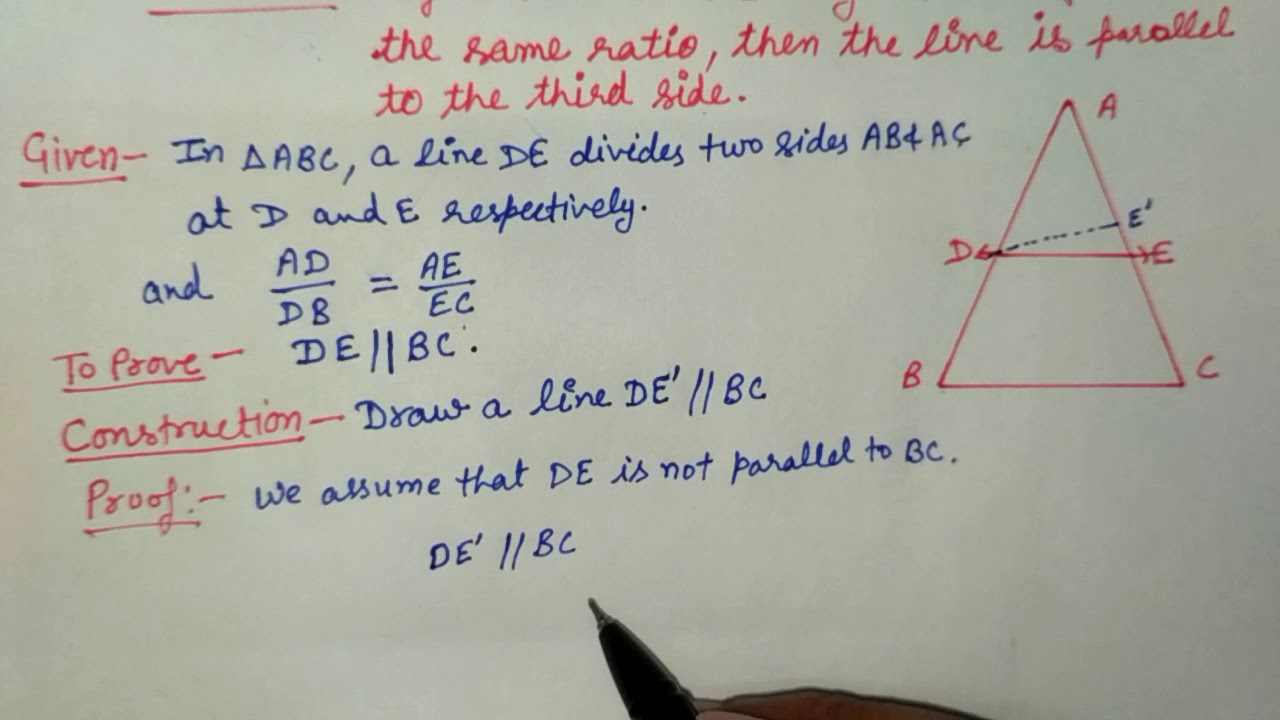 the same ratio, then the line is parallel
to the third side.
Given- In △ABC, a line DE divides two sides AB & AC
at D and E respectively.
and AD/DB = AE/EC
To Prove- DE||BC.
Construction- Draw a line DE' // BC
Proof:- We assume that DE is not parallel to BC.
DE' // BC
A
E'
D
E
B
C